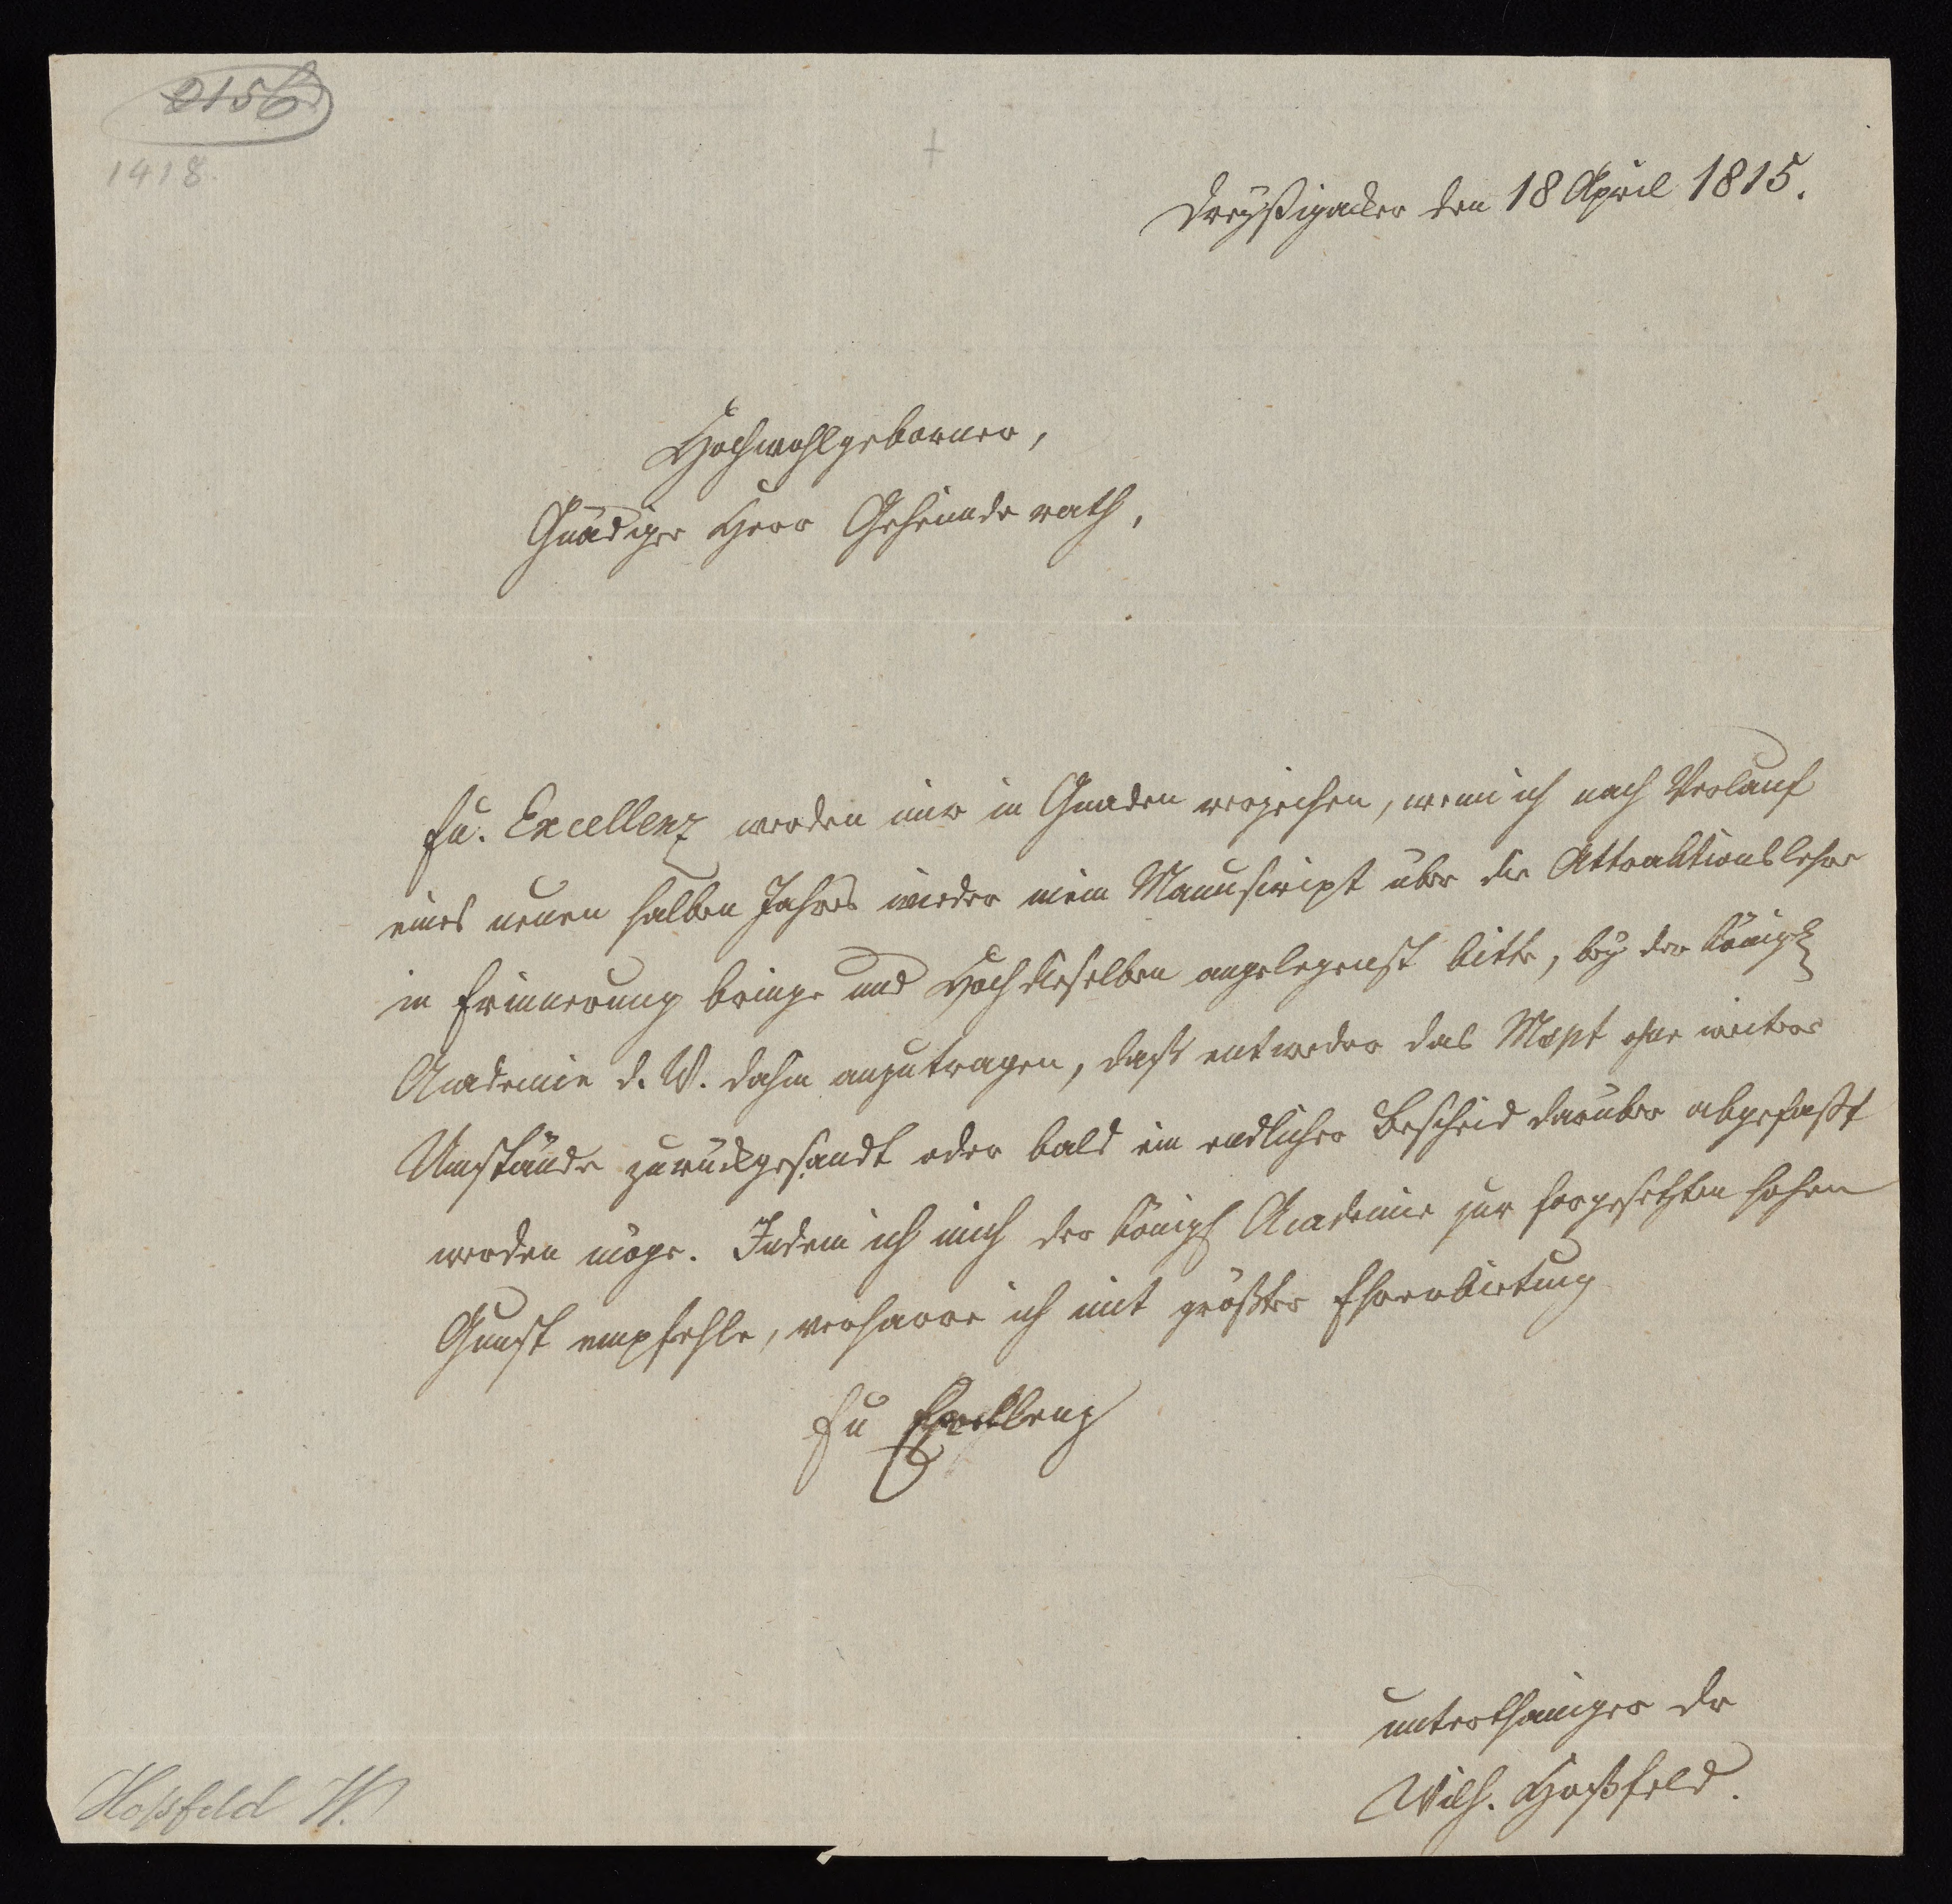 2156
1418.
Dreyßigacker den 18 April 1815.
Hochwohlgeborner,
Gnädiger Herr Geheimde rath,
Eu. Excellenz werden mir in Gnaden verzeihen, wenn ich nach Verlauf
eines neuen halben Jahres wieder mein Manuscript über die Attraktionslehre
in Erinnerung bringe und Hochdieselben angelegenst bitte, bey der Königl
Academie d. W. dahin anzutragen, daß entweder das Mspt ohne weitere
Umstände zurückgesandt oder bald ein endlicher Bescheid darüber abgefaßt
werden möge. Indem ich mich der Königl Academie zur forgesetzten hohen
Gunst empfehle, verharre ich mit größter Ehrerbietung
Eu Excellenz
unterthäniger Dr
Wilh. Hoßfeld.
Hoßfeld W.